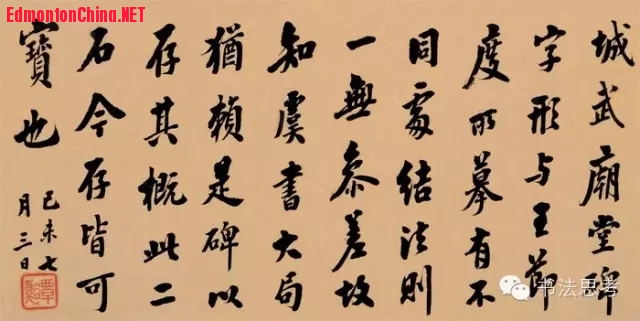 城武廟堂碑
字形与王節
度所摹有不
同處結法則
一無叅差故
知虞書大局
猶賴是碑以
存其概此二
石今存皆可
寶也
己未七
月三日
EdmontonChina.NET
书法思考